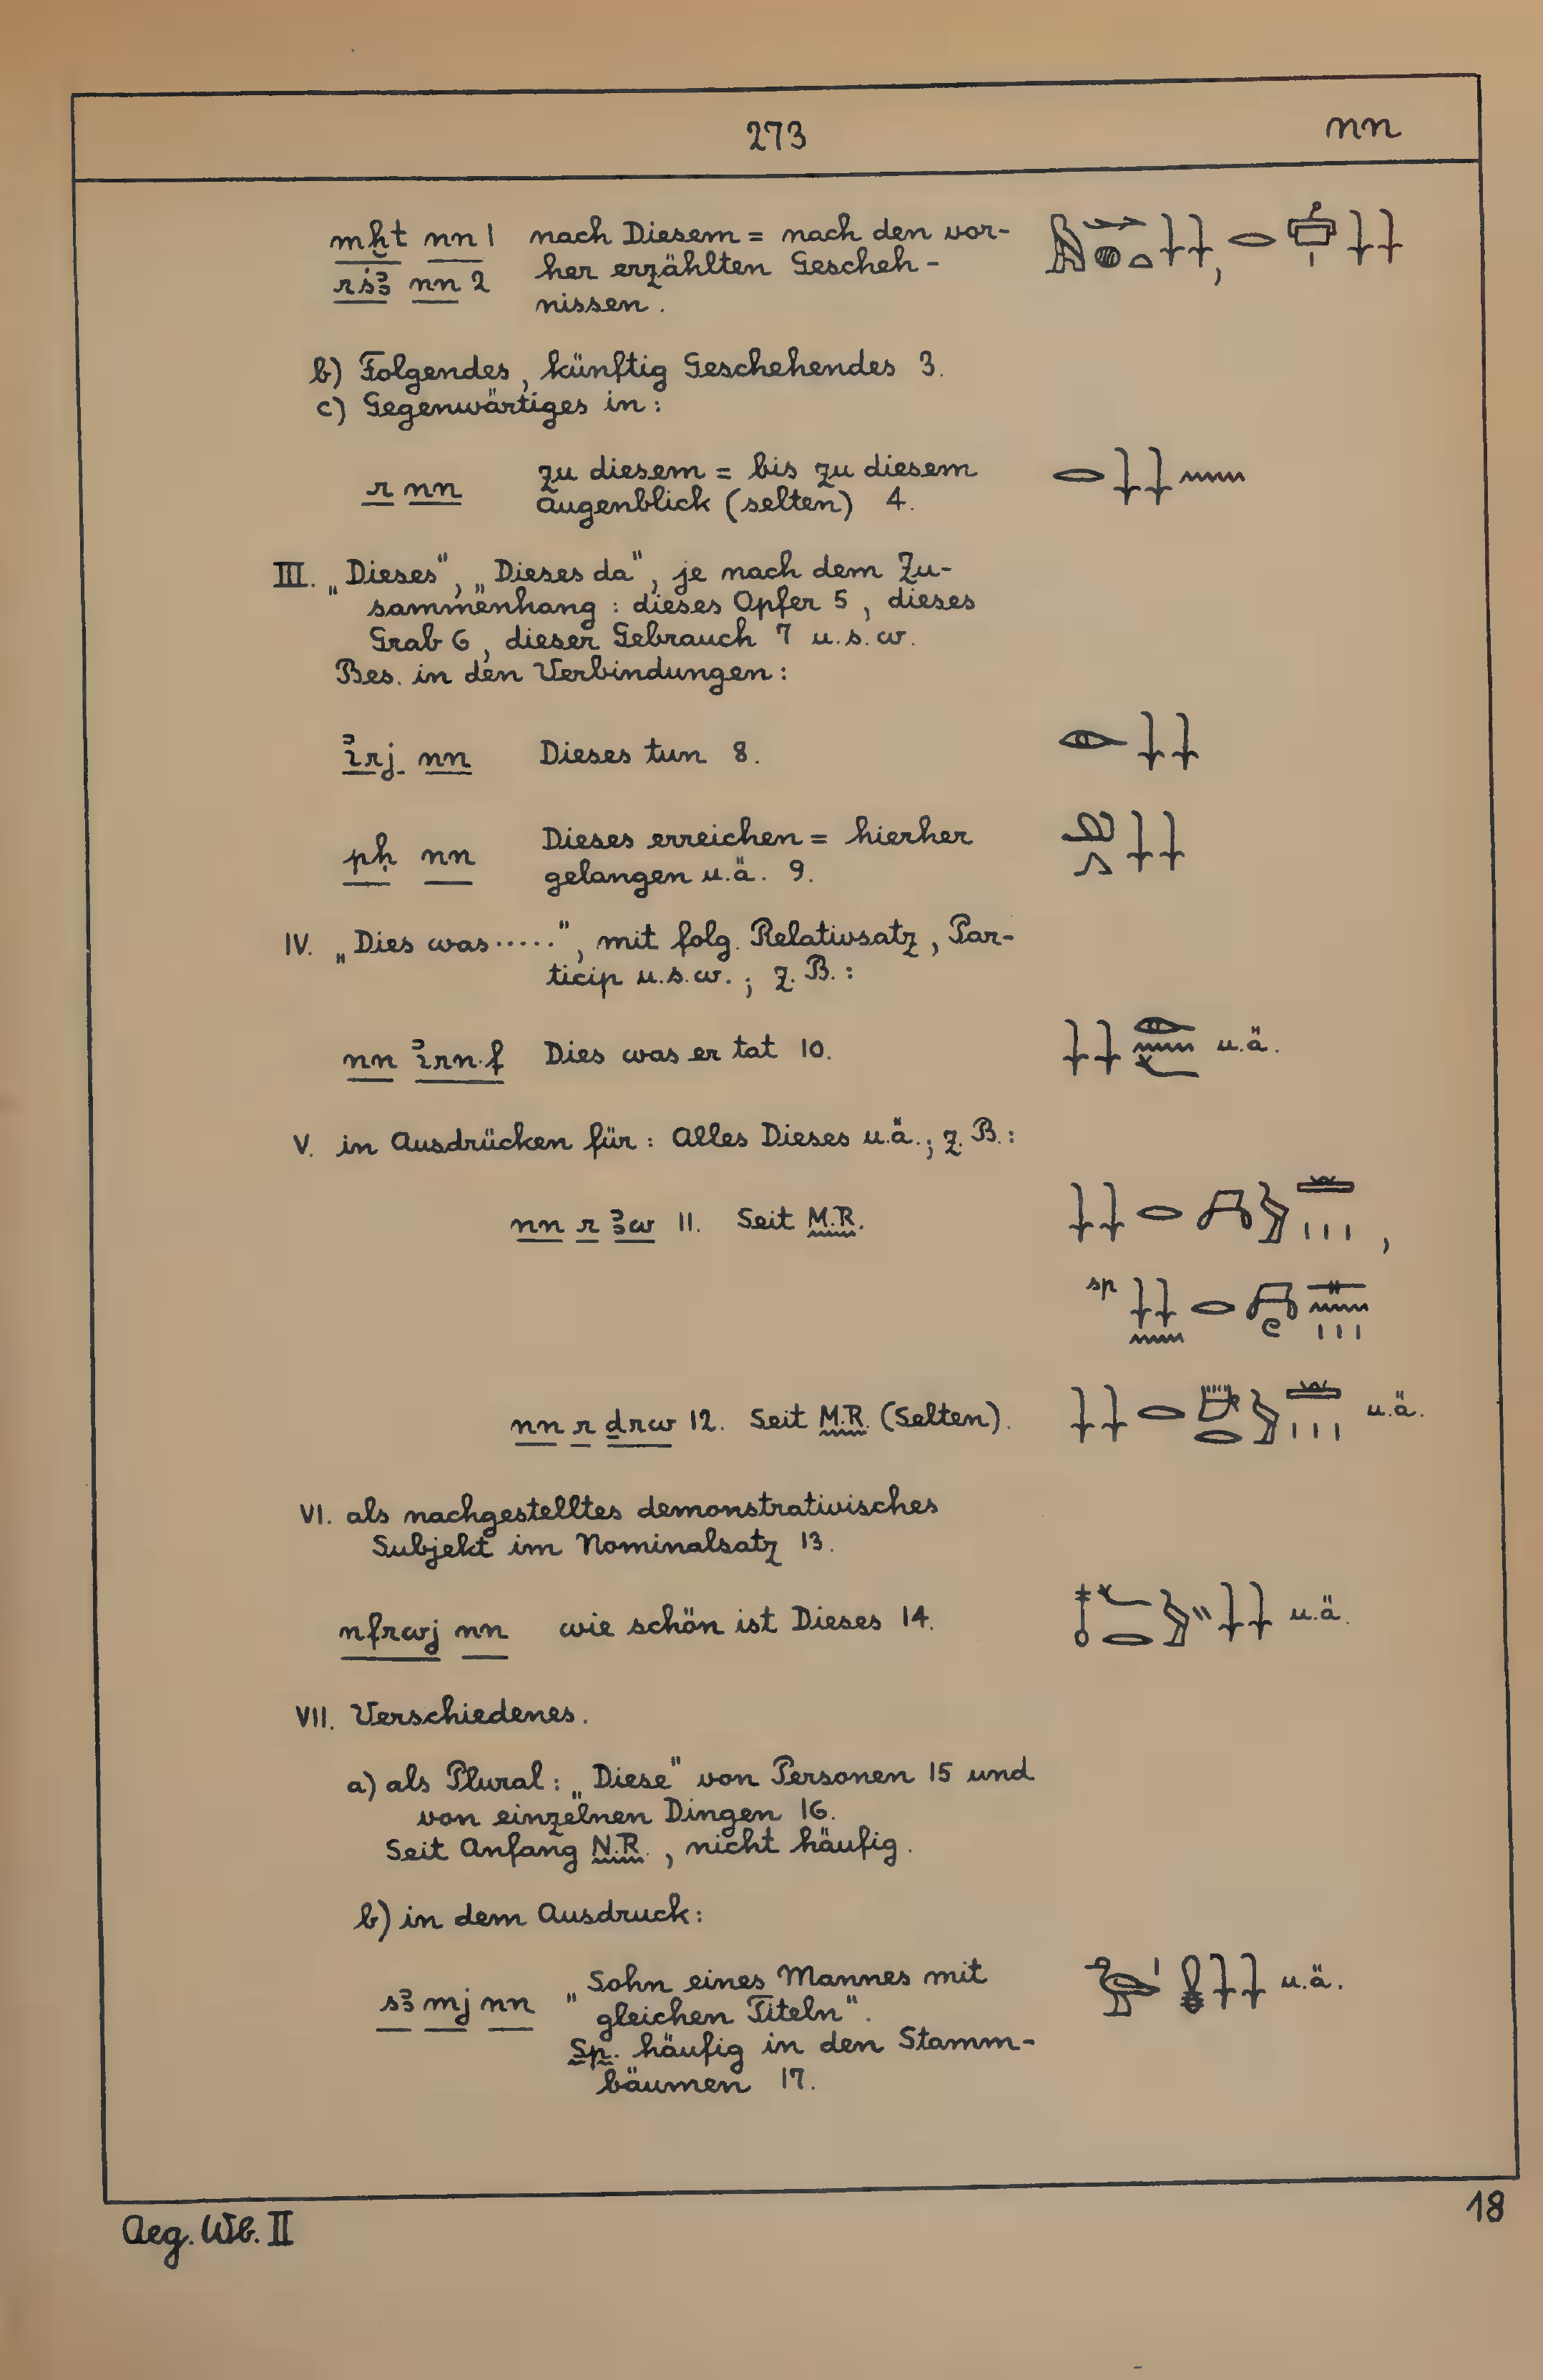 273 nn
mḫt nn 1 nach Diesem = nach den vor-
rśꜣ nn 2 her erzählten Gescheh-
nissen.
b) Folgendes, künftig Geschehendes 3.
c) Gegenwärtiges in:
r nn zu diesem = bis zu diesem
Augenblick (selten) 4.
III. „Dieses", „Dieses da", je nach dem Zu-
sammenhang: dieses Opfer 5, dieses
Grab 6, dieser Gebrauch 7 u.s.w.
Bes. in den Verbindungen:
ꞽrj nn Dieses tun 8.
pḥ nn Dieses erreichen = hierher
gelangen u.ä. 9.
IV. „Dies was.....", mit folg. Relativsatz, Par-
ticip u.s.w.; z.B.:
nn ꞽrn·f Dies was er tat 10. u.ä.
V. in Ausdrücken für: Alles Dieses u.ä.; z.B.:
nn r ꜣw 11. Seit M.R. ,
sp
nn r ḏrw 12. Seit M.R. (Selten). u.ä.
VI. als nachgestelltes demonstrativisches
Subjekt im Nominalsatz 13.
nfrwj nn wie schön ist Dieses 14. u.ä.
VII. Verschiedenes.
a) als Plural: „Diese" von Personen 15 und
von einzelnen Dingen 16.
Seit Anfang N.R., nicht häufig.
b) in dem Ausdruck:
sꜣ mj nn „Sohn eines Mannes mit u.ä.
gleichen Titeln".
Sp. häufig in den Stamm-
bäumen 17.
Aeg. Wb. II 18